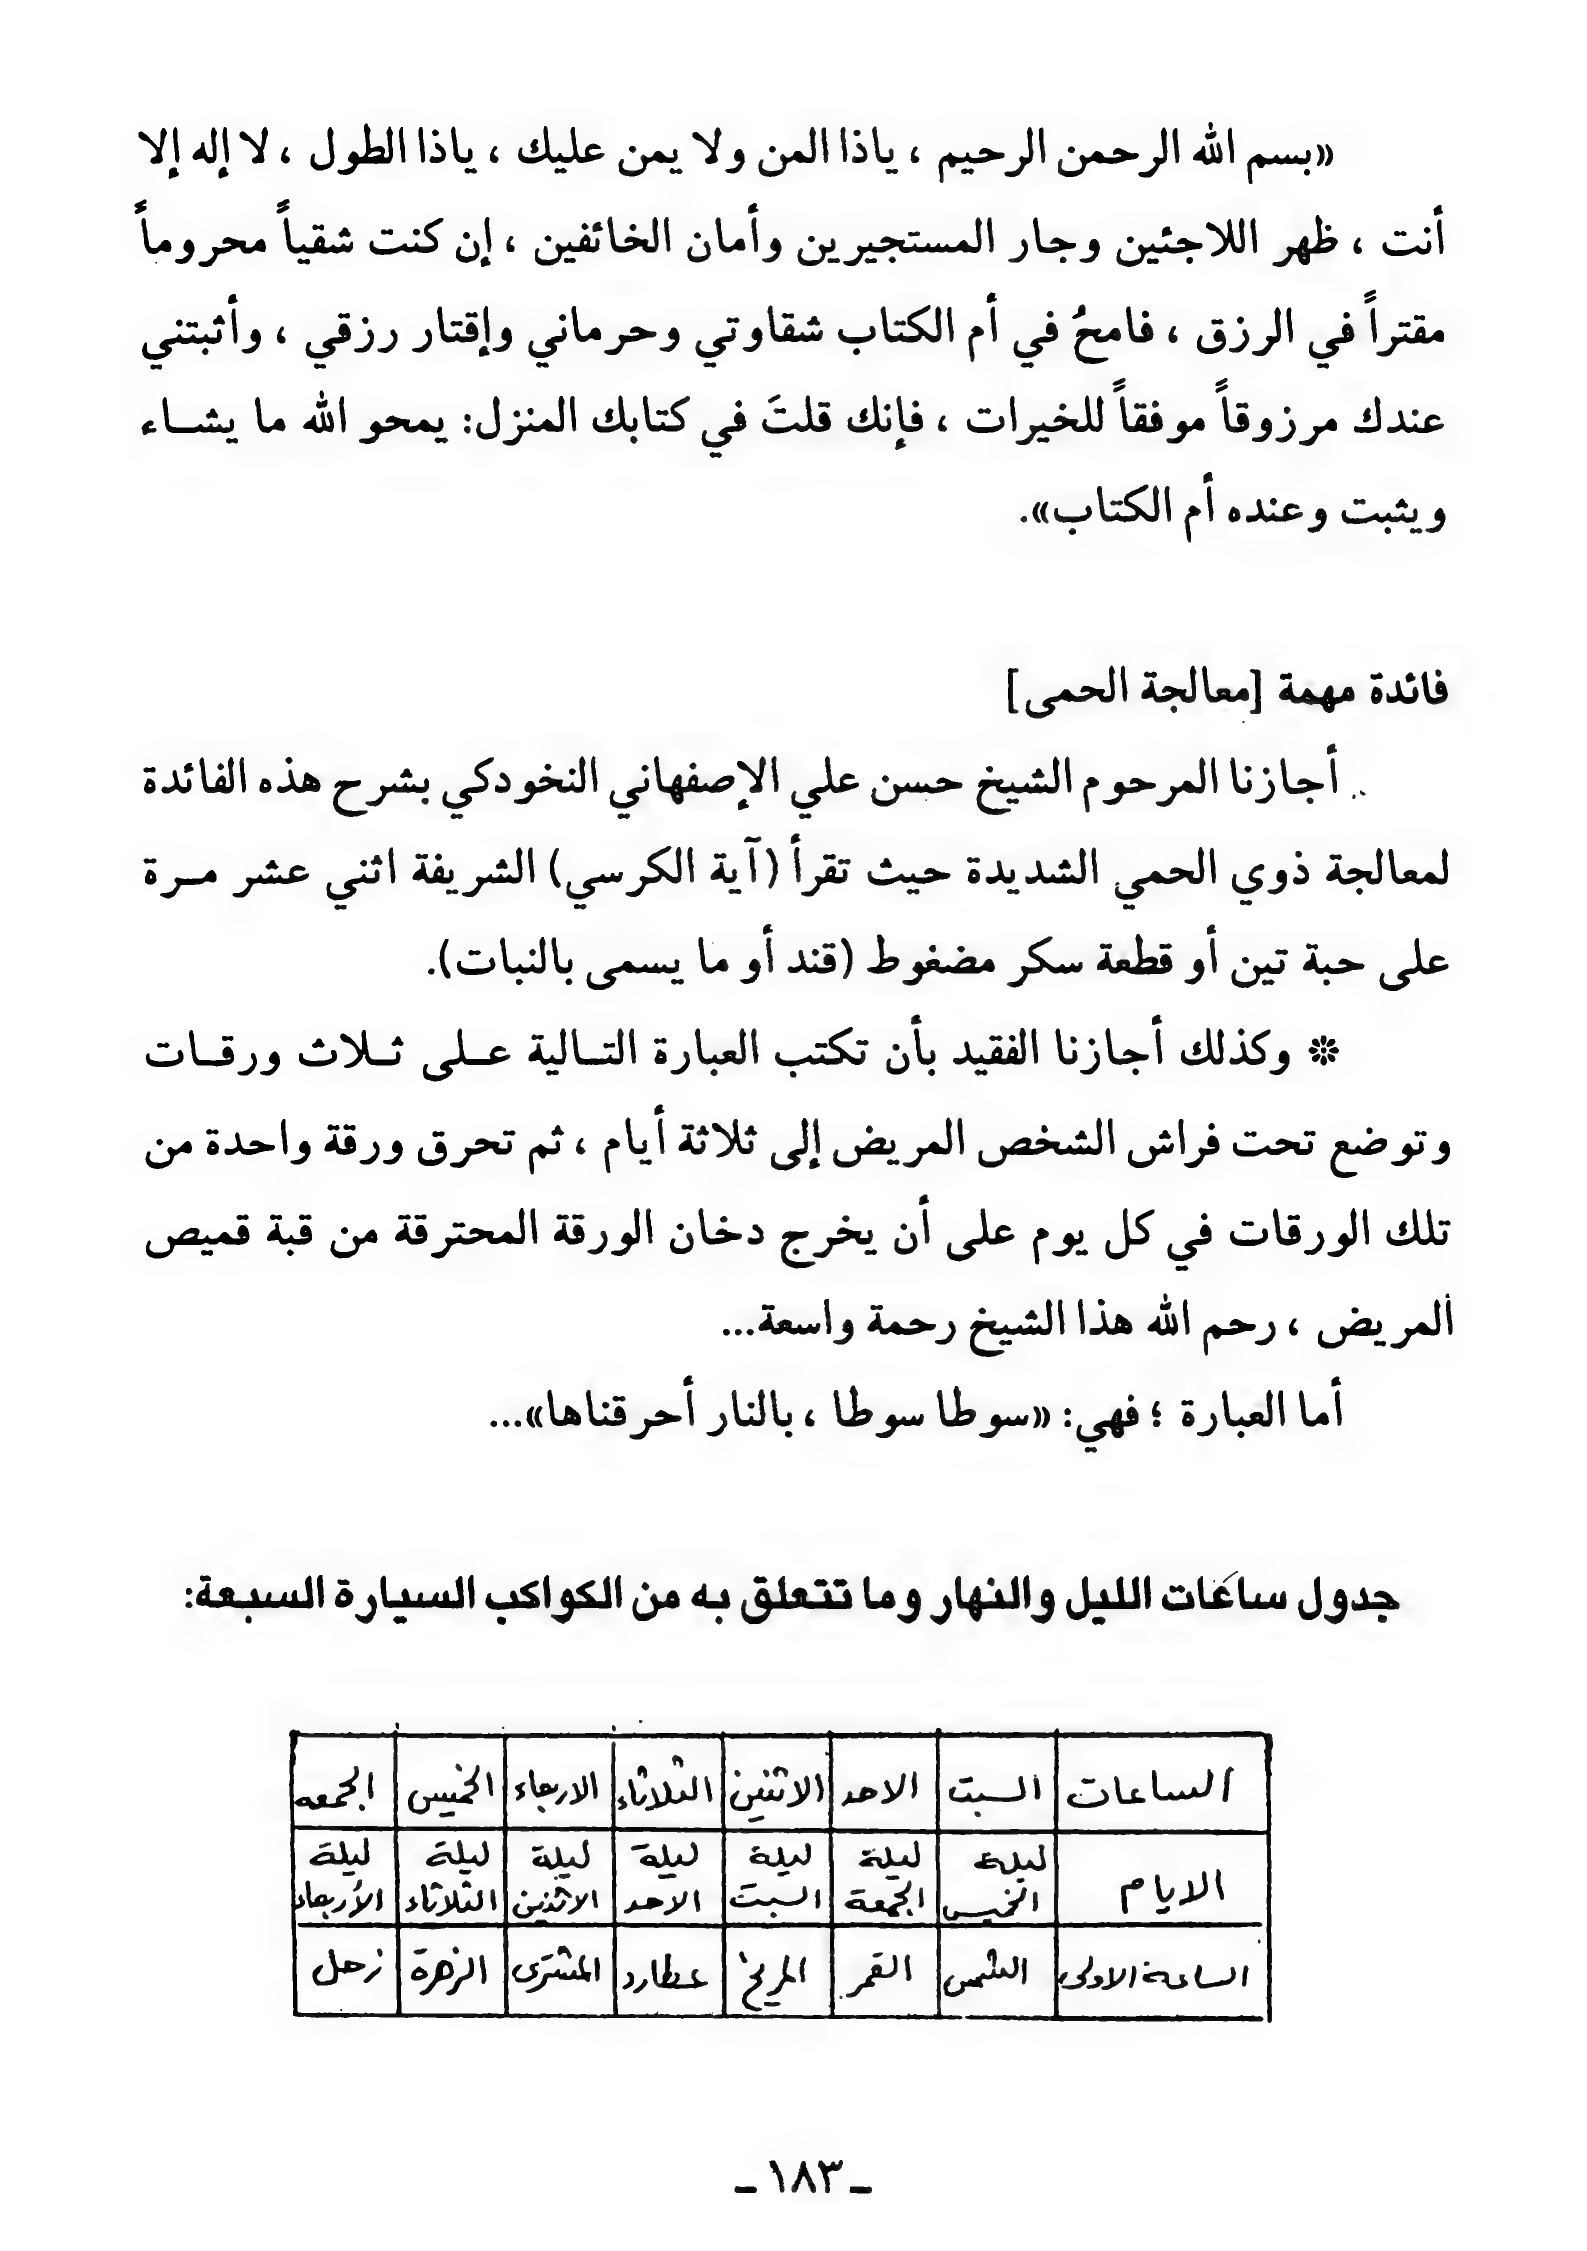 «بسم الله الرحمن الرحيم ، ياذا المن ولا يمن عليك ، ياذا الطول ، لا إله إلا
أنت ، ظهر اللاجئين وجار المستجيرين وأمان الخائفين ، إن كنت شقياً محروماً
مقتراً في الرزق ، فامحُ في أم الكتاب شقاوتي وحرماني وإقتار رزقي ، وأثبتني
عندك مرزوقاً موفقاً للخيرات ، فإنك قلتَ في كتابك المنزل: يمحو الله ما يشــاء
ويثبت وعنده أم الكتاب».
فائدة مهمة [معالجة الحمى]
أجازنا المرحوم الشيخ حسن علي الإصفهاني النخودكي بشرح هذه الفائدة
لمعالجة ذوي الحمي الشديدة حيث تقرأ (آية الكرسي) الشريفة اثني عشر مــرة
على حبة تين أو قطعة سكر مضغوط (قند أو ما يسمى بالنبات).
❊ وكذلك أجازنا الفقيد بأن تكتب العبارة التــالية عــلى ثــلاث ورقــات
وتوضع تحت فراش الشخص المريض إلى ثلاثة أيام ، ثم تحرق ورقة واحدة من
تلك الورقات في كل يوم على أن يخرج دخان الورقة المحترقة من قبة قميص
المريض ، رحم الله هذا الشيخ رحمة واسعة...
أما العبارة ؛ فهي: «سوطا سوطا ، بالنار أحرقناها»...
جدول ساعات الليل والنهار وما تتعلق به من الكواكب السيارة السبعة:
الساعات السبت الاحد الاثنين الثلاثاء الاربعاء الخميس الجمعه
الايام ليلة الخميس ليلة الجمعة ليلة السبت ليلة الاحد ليلة الاثنين ليلة الثلاثاء ليلة الأربعاء
الساعة الاولى الشمس القمر المريخ عطارد المشترى الزهرة زحل
ـ ١٨٣ ـ